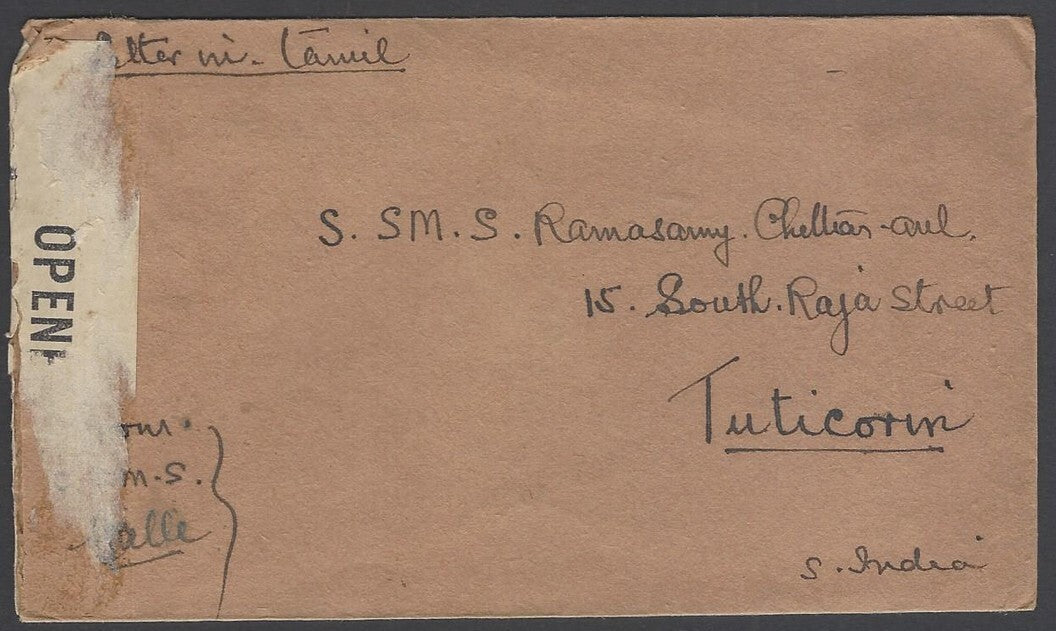 letter in - Tamil
OPEN
S. SM. S. Ramasamy. Chettiar-avl.
15. South. Raja Street
Tuticorin
S. India
M.S.
Galle